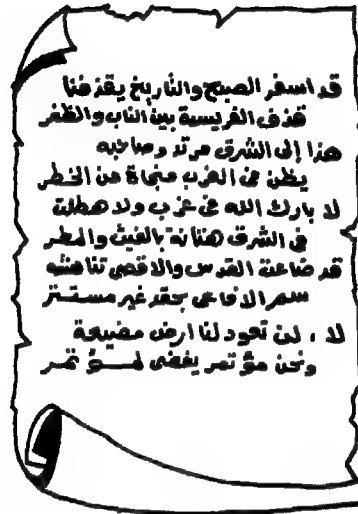 قد اسفر الصبح والتاريخ يقذفنا
قذف الفريسة بين الناب والظفر
هذا إلى الشرق مرتد وصاحبه
يظن في الغرب منجاة من الخطر
لا بارك الله في غرب ولا هطلت
في الشرق هتانة بالغيث والمطر
قد ضاعت القدس والاقصى تناهشه
سمر الافاعي بحقد غير مستتر
لا ، لن تعود لنا ارض مضيعة
ونحن مؤتمر يفضى لمؤتمر